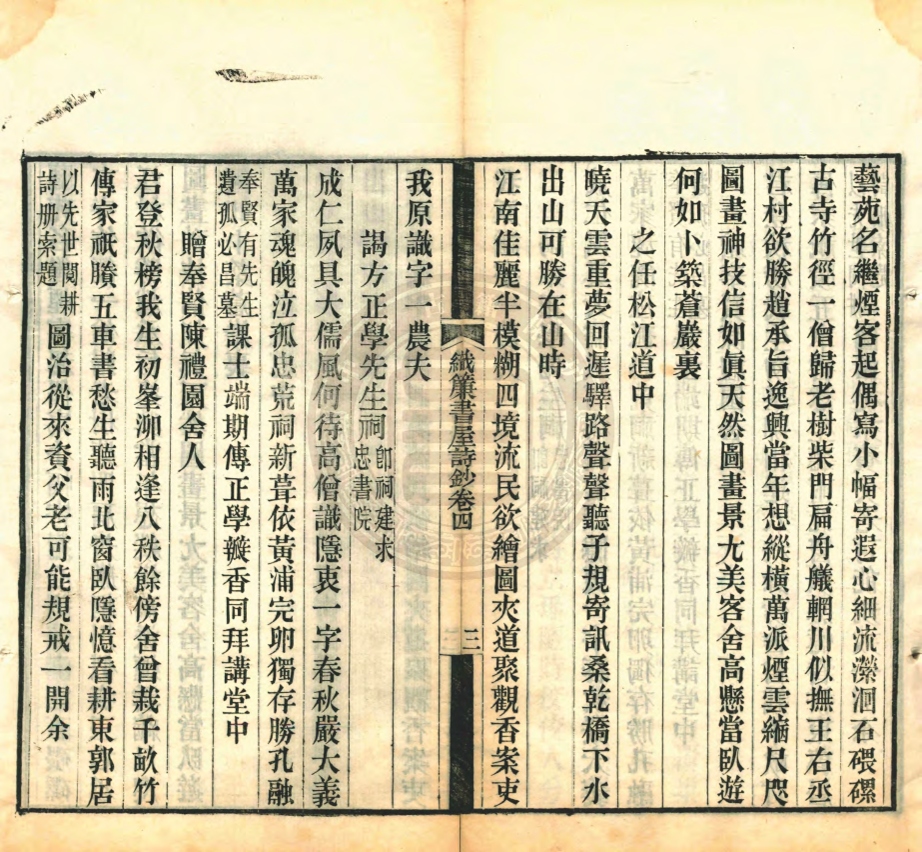 藝苑名繼煙客起偶寫小幅寄遐心細流瀠洄石磥磥
古寺竹徑一僧歸老樹柴門扁舟艤輞川似撫王右丞
江村欲勝趙承旨逸興當年想縱橫萬派煙雲縮尺咫
圖畫神技信如眞天然圖畫景尢美客舍高懸當臥遊
何如卜築蒼巖裏
之任松江道中
曉天雲重夢回遲驛路聲聲聽子規寄訊桑乾橋下水
出山可勝在山時
江南佳麗半模糊四境流民欲繪圖夾道聚觀香案吏
織簾書屋詩鈔卷四
三
我原識字一農夫
謁方正學先生祠卽祠建求忠書院
成仁夙具大儒風何待高僧識隱衷一字春秋嚴大義
萬家魂魄泣孤忠荒祠新葺依黃浦完卵獨存勝孔融
奉賢有先生遺孤必昌墓課士端期傳正學瓣香同拜講堂中
贈奉賢陳禮園舍人
君登秋榜我生初峯泖相逢八秩餘傍舍曾栽千畝竹
傳家祇賸五車書愁生聽雨北窗臥隱憶看耕東郭居
以先世閱耕詩册索題圖治從來資父老可能規戒一開余